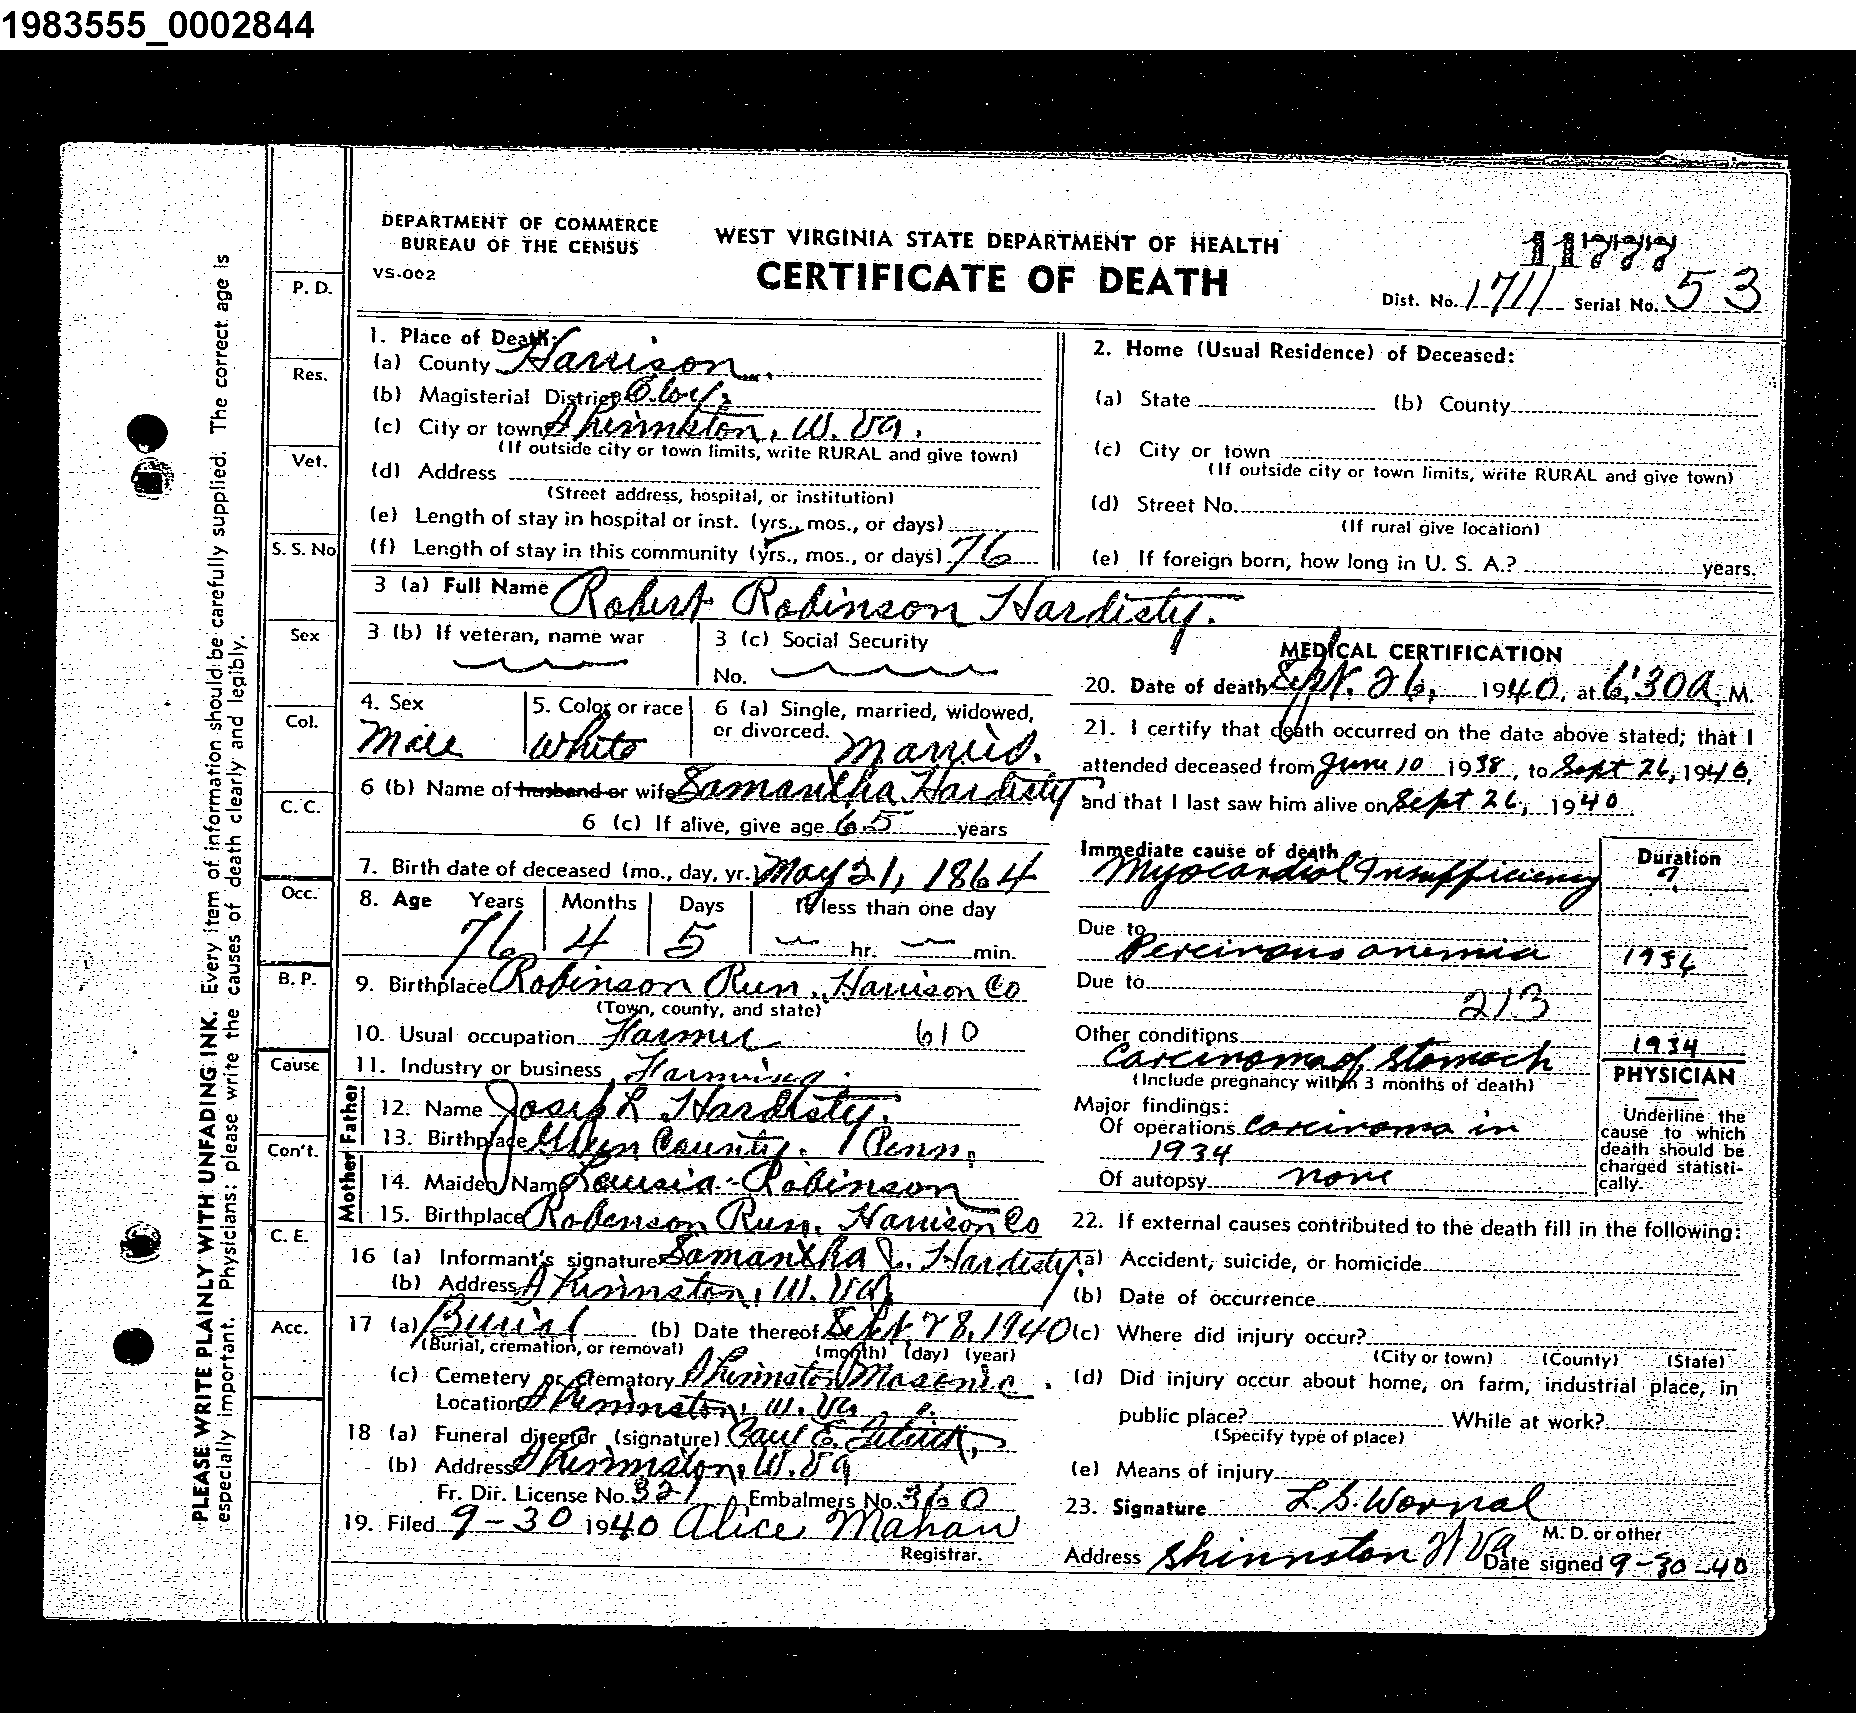 1983555_0002844
DEPARTMENT OF COMMERCE
BUREAU OF THE CENSUS
VS-002
WEST VIRGINIA STATE DEPARTMENT OF HEALTH
CERTIFICATE OF DEATH
11777
Dist. No. 1711 Serial No. 53
PLEASE WRITE PLAINLY WITH UNFADING INK. Every item of information should be carefully supplied. The correct age is
especially important. Physicians: please write the causes of death clearly and legibly.
P. D.
Res.
Vet.
S. S. No
Sex
Col.
C. C.
Occ.
B. P.
Cause
Con't.
C. E.
Acc.
1. Place of Death:
(a) County Harrison
(b) Magisterial District Clay.
(c) City or town Shinnston, W. Va.
(If outside city or town limits, write RURAL and give town)
(d) Address
(Street address, hospital, or institution)
(e) Length of stay in hospital or inst. (yrs., mos., or days)
(f) Length of stay in this community (yrs., mos., or days) 76
2. Home (Usual Residence) of Deceased:
(a) State (b) County
(c) City or town
(If outside city or town limits, write RURAL and give town)
(d) Street No.
(If rural give location)
(e) If foreign born, how long in U. S. A.? years.
3 (a) Full Name Robert Robinson Hardisty.
3 (b) If veteran, name war
3 (c) Social Security
No.
4. Sex
Male
5. Color or race
White
6 (a) Single, married, widowed,
or divorced. Married.
6 (b) Name of husband or wife Samantha Hardisty
6 (c) If alive, give age 65 years
7. Birth date of deceased (mo., day, yr.) May 21, 1864
8. Age Years Months Days If less than one day
76 4 5 hr. min.
9. Birthplace Robinson Run, Harrison Co
(Town, county, and state)
10. Usual occupation Farmer 610
11. Industry or business Farming.
Father
12. Name Joseph L Hardisty.
13. Birthplace Green County. Penn.
Mother
14. Maiden Name Lousia Robinson
15. Birthplace Robenson Run, Harrison Co
16 (a) Informant's signature Samantha J. Hardisty.
(b) Address Shinnston, W. Va
17 (a) Burial (b) Date thereof Sept. 28, 1940
(Burial, cremation, or removal) (month) (day) (year)
(c) Cemetery or crematory Shinnston Masonic.
Location Shinnston, W. Va.
18 (a) Funeral director (signature) Paul E.
(b) Address Shinnston, W. Va
Fr. Dir. License No. 321 Embalmers No. 360
19. Filed 9-30 1940 Alice Mahan
Registrar.
MEDICAL CERTIFICATION
20. Date of death Sept. 26, 1940, at 6:30 a. M.
21. I certify that death occurred on the date above stated; that I
attended deceased from June 10 1938, to Sept 26, 1940,
and that I last saw him alive on Sept 26, 1940
Immediate cause of death
Myocardial Insufficiency
Duration
?
Due to
Percinous anemia 1934
Due to
213
Other conditions
Carcinoma of stomach 1934
(Include pregnancy within 3 months of death)
Major findings:
Of operations carcinoma in
1934
Of autopsy none
PHYSICIAN
Underline the
cause to which
death should be
charged statisti-
cally.
22. If external causes contributed to the death fill in the following:
(a) Accident, suicide, or homicide
(b) Date of occurrence
(c) Where did injury occur?
(City or town) (County) (State)
(d) Did injury occur about home, on farm, industrial place, in
public place? While at work?
(Specify type of place)
(e) Means of injury
23. Signature L. S. Wornal
M. D. or other
Address Shinnston W Va Date signed 9-30-40